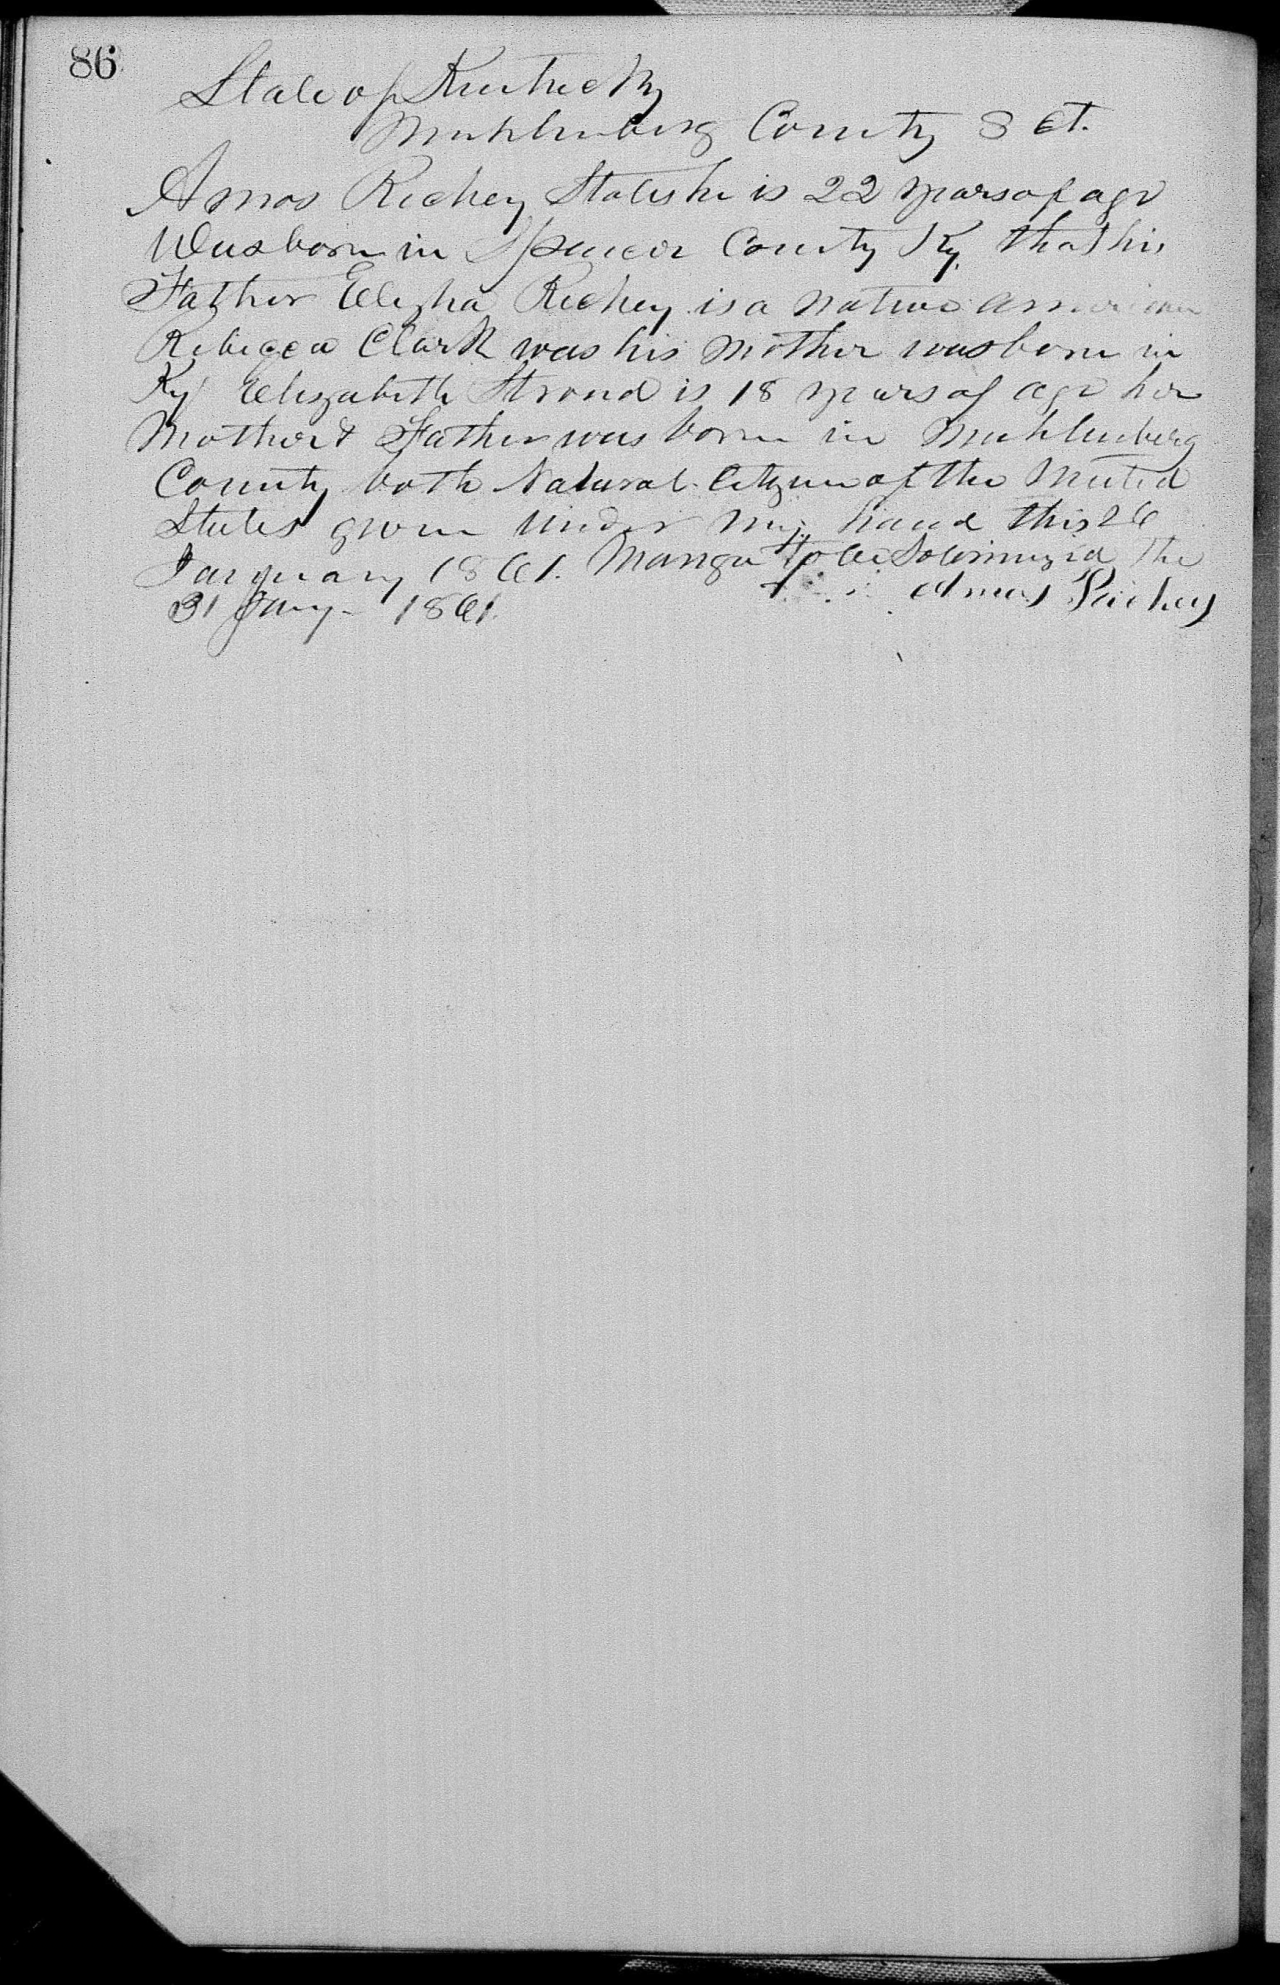 86
State of Kentucky
Muhlenberg County Sct.
Amos Richey States he is 22 years of age
Was born in Spencer County Ky, that his
Father Elizha Richey is a native American
Rebecca Clark was his Mother was born in
Ky Elizabeth Stroud is 18 years of age her
Mother & Father was born in Muhlenberg
County both Natural Citizen of the United
States given under my hand this 26
January 1861. Marriage to be Solemnized the
31 Jany - 1861. Amos Richey